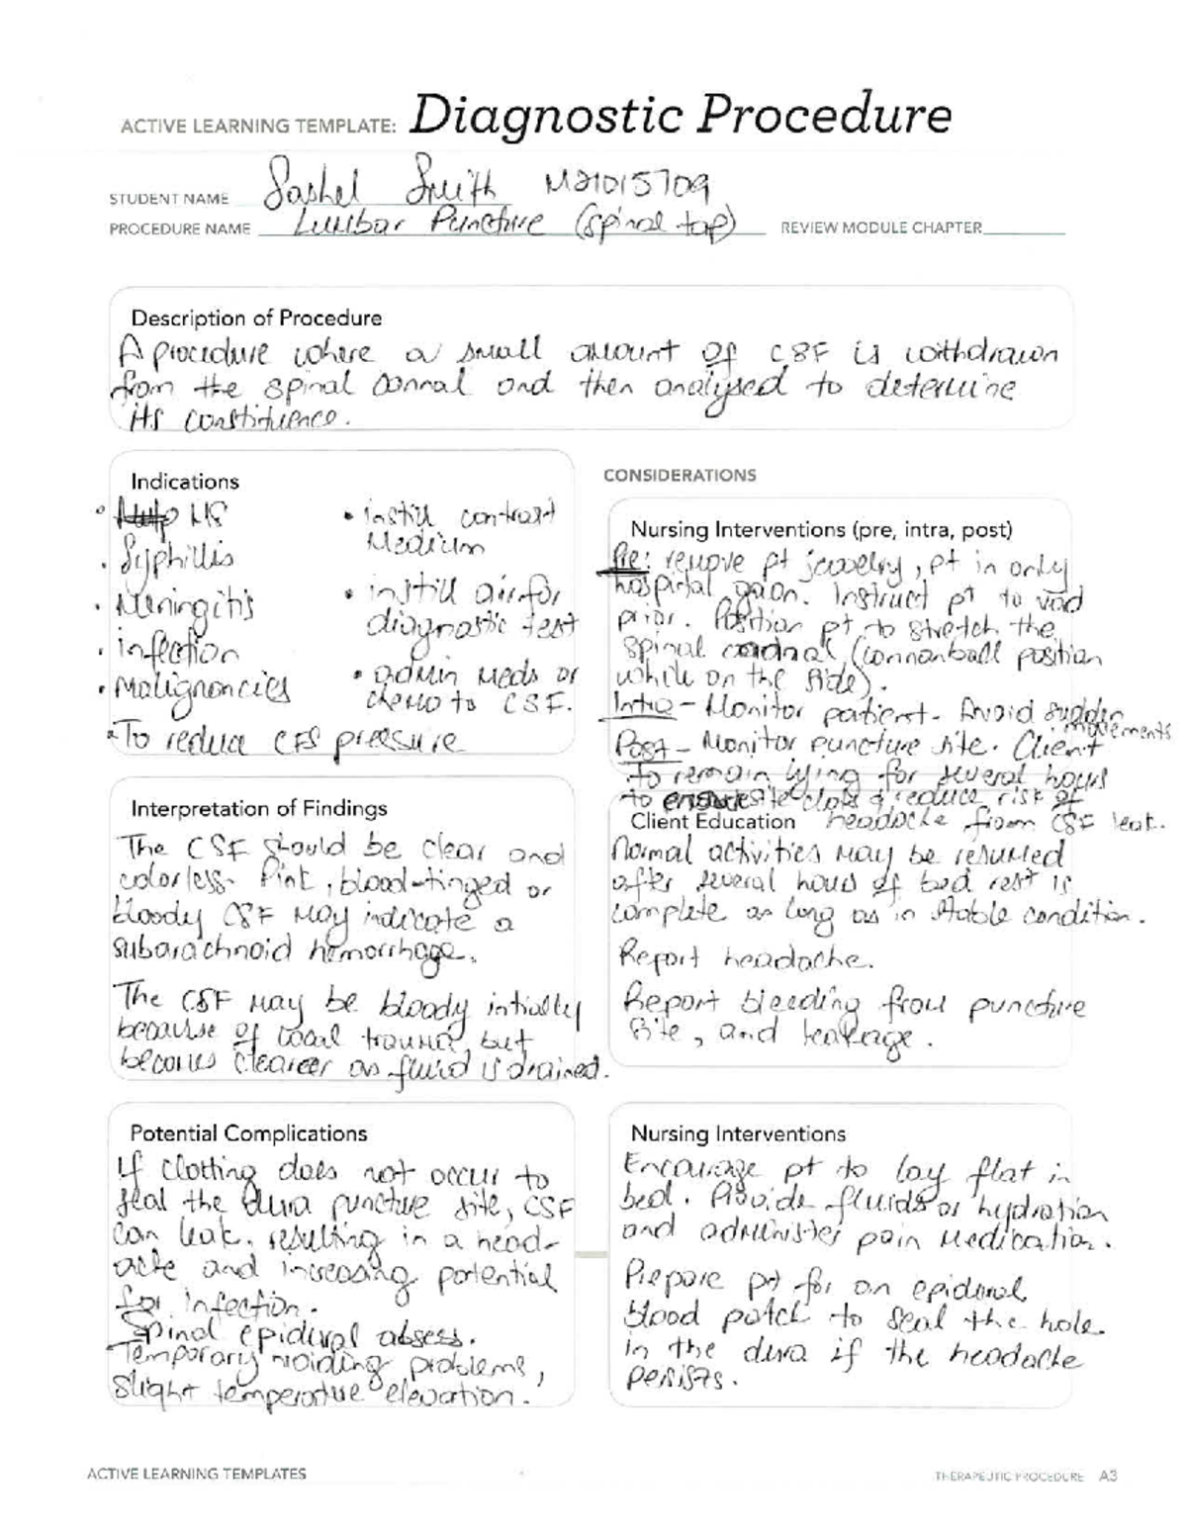 ACTIVE LEARNING TEMPLATE: Diagnostic Procedure
STUDENT NAME Sashel Smith M21015709
PROCEDURE NAME Lumbar Puncture (spinal tap) REVIEW MODULE CHAPTER
Description of Procedure
A procedure where a small amount of CSF is withdrawn
from the spinal cannal and then analysed to determine
its constituence.
Indications
• MS
• Syphillis
• Meningitis
• infection
• Malignancies
• To reduce CFS pressure
• instill contrast
Medium
• instill air for
diagnostic test
• admin meds or
chemo to CSF.
CONSIDERATIONS
Nursing Interventions (pre, intra, post)
Pre: remove pt jewelry, pt in only
hospital gown. Instruct pt to void
prior. Position pt to stretch the
spinal (cannonball position
while on the side).
Intra - Monitor patient. Avoid sudden
movements
Post - Monitor puncture site. Client
to remain lying for several hours
to ensure site clots & reduce risk of
headache from CSF leak.
Interpretation of Findings
The CSF should be clear and
colorless. Pink, blood-tinged or
bloody CSF may indicate a
subarachnoid hemorrhage.
The CSF may be bloody intially
because of local trauma but
becomes clearer as fluid is drained.
Client Education
Normal activities may be resumed
after several hours of bed rest is
complete as long as in stable condition.
Report headache.
Report bleeding from puncture
site, and leakage.
Potential Complications
If clotting does not occur to
seal the dura puncture site, CSF
can leak, resulting in a head-
ache and increasing potential
for infection.
Spinal epidural absess.
Temporary voiding problems,
slight temperature elevation.
Nursing Interventions
Encourage pt to lay flat in
bed. Provide fluids or hydration
and administer pain medication.
Prepare pt for an epidural
blood patch to seal the hole
in the dura if the headache
persists.
ACTIVE LEARNING TEMPLATES
THERAPEUTIC PROCEDURE A3